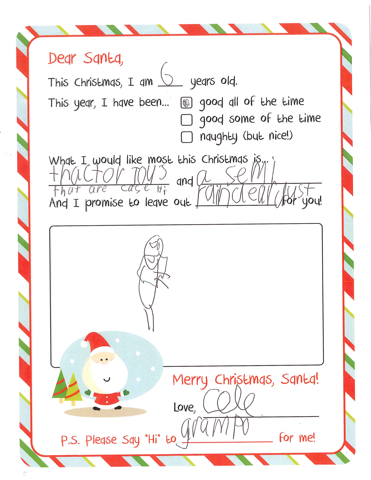 Dear Santa,
This Christmas, I am 6 years old.
This year, I have been... good all of the time
good some of the time
naughty (but nice!)
What I would like most this Christmas is...
tractor toys and a semi
that are case ih
And I promise to leave out raindear dust for you!
Merry Christmas, Santa!
Love, Cole
P.S. Please Say "Hi" to grampo for me!